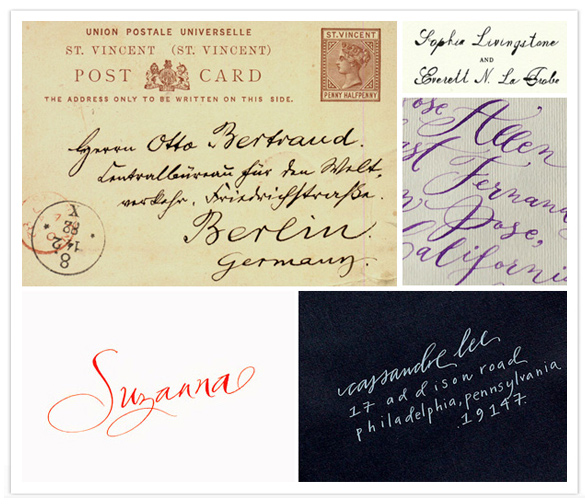 UNION POSTALE UNIVERSELLE
ST. VINCENT (ST. VINCENT)
POST CARD
THE ADDRESS ONLY TO BE WRITTEN ON THIS SIDE.
ST. VINCENT
PENNY HALFPENNY
Herrn Otto Bertrand.
Centralbüreau für den Welt-
verkehr, Friedrichstraße.
Berlin
Germany.
Sophia Livingstone
AND
Everett N. La Trobe
Jose
Allen
Fernand
Jose,
Californi
Suzanna
cassandre lee
17 addison road
philadelphia, pennsylvania
19147